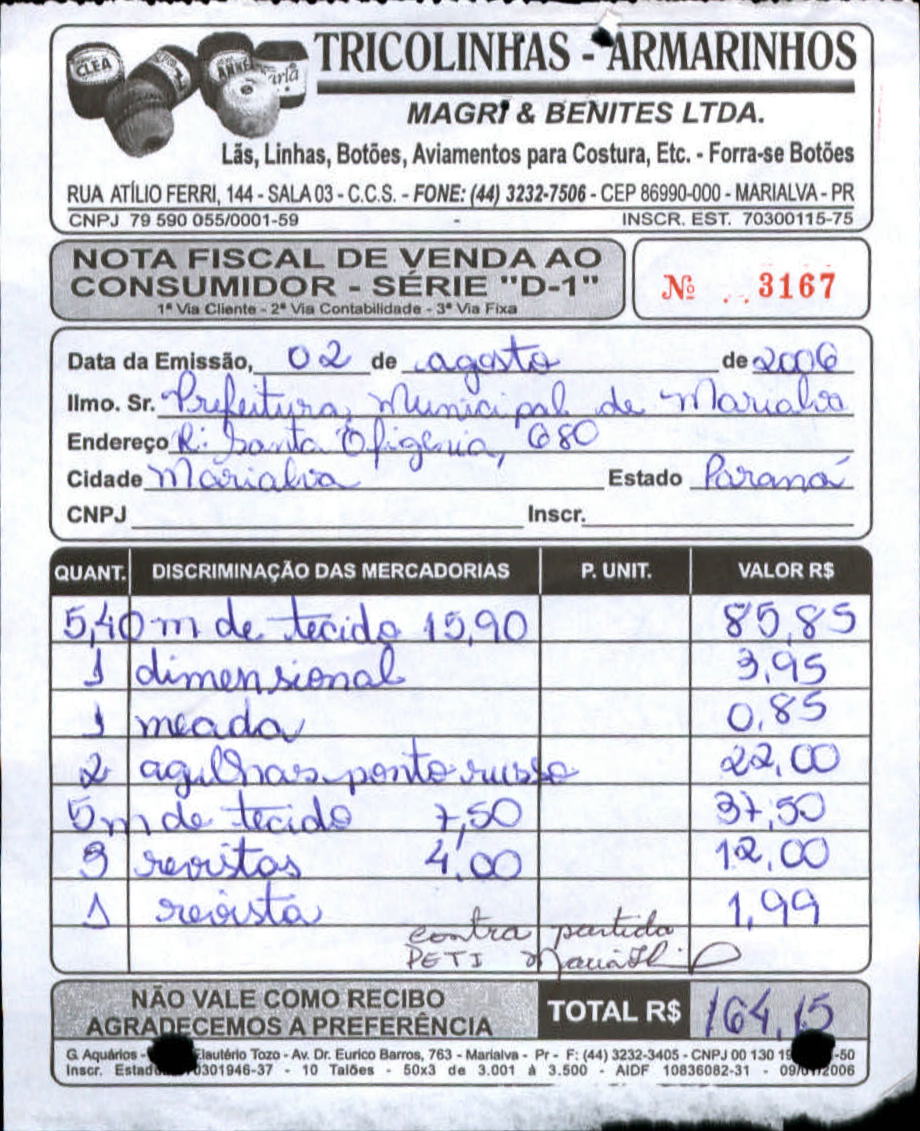 CLEA
ANNE
TRICOLINHAS - ARMARINHOS
MAGRI & BENITES LTDA.
Lãs, Linhas, Botões, Aviamentos para Costura, Etc. - Forra-se Botões
RUA ATÍLIO FERRI, 144 - SALA 03 - C.C.S. - FONE: (44) 3232-7506 - CEP 86990-000 - MARIALVA - PR
CNPJ 79 590 055/0001-59 - INSCR. EST. 70300115-75
NOTA FISCAL DE VENDA AO
CONSUMIDOR - SÉRIE "D-1"
1ª Via Cliente - 2ª Via Contabilidade - 3ª Via Fixa
Nº 3167
Data da Emissão, 02 de agosto de 2006
Ilmo. Sr. Prefeitura Municipal de Marialva
Endereço R: Santa Efigenia, 680
Cidade Marialva Estado Paraná
CNPJ Inscr.
QUANT. DISCRIMINAÇÃO DAS MERCADORIAS P. UNIT. VALOR R$
5,40 m de tecido 15,90 85,85
1 dimensional 3,95
1 meada 0,85
2 agulhas ponto russo 22,00
5 m de tecido 7,50 37,50
3 revistas 4,00 12,00
1 revista 1,99
contra partida
PETI Maria
NÃO VALE COMO RECIBO
AGRADECEMOS A PREFERÊNCIA
TOTAL R$ 164,15
G. Aquários - Elautério Tozo - Av. Dr. Eurico Barros, 763 - Marialva - Pr - F: (44) 3232-3405 - CNPJ 00 130 -50
Inscr. 0301946-37 - 10 Talões - 50x3 de 3.001 à 3.500 - AIDF 10836082-31 - 09/01/2006